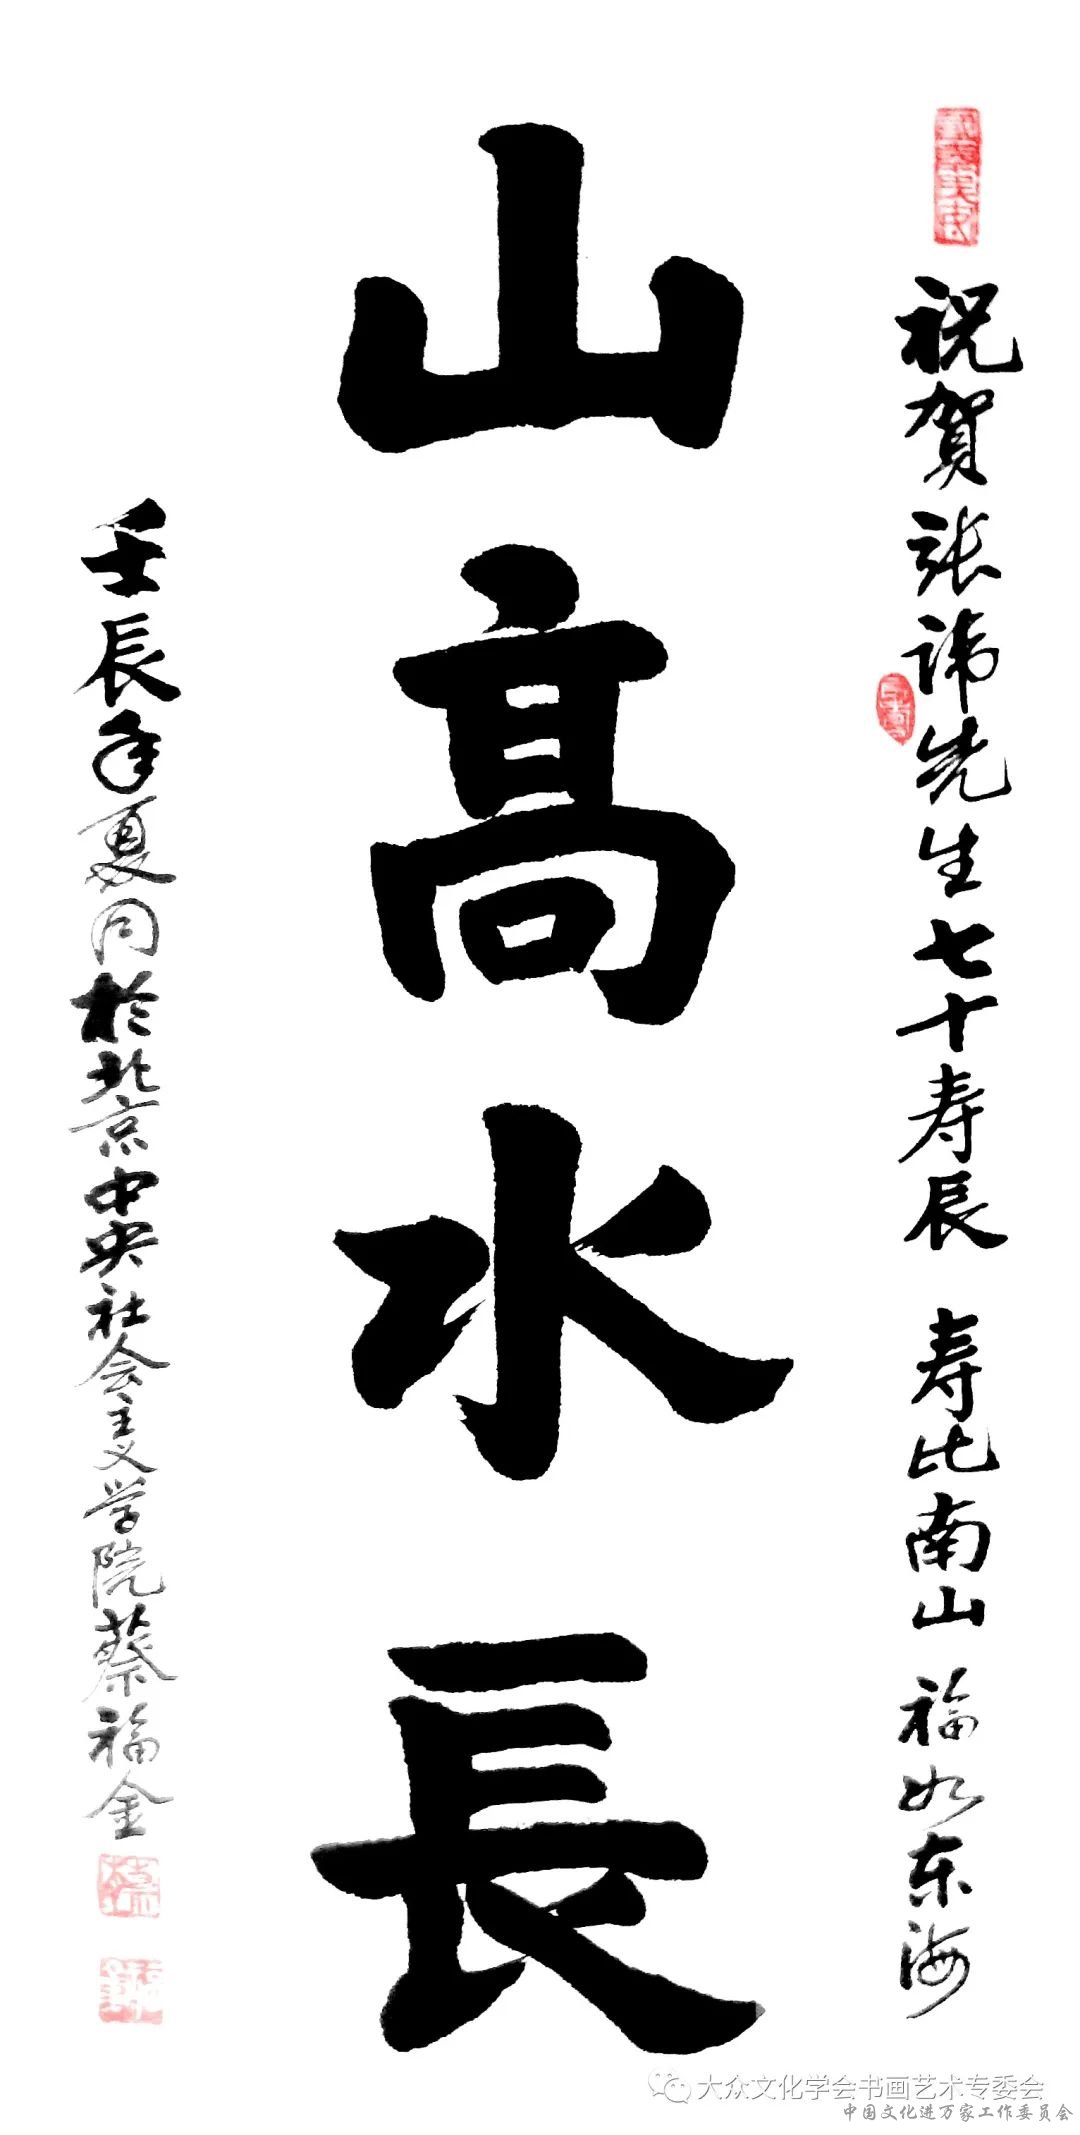 祝贺张讳先生七十寿辰 寿比南山 福如东海
山高水長
壬辰年夏月於北京中央社会主义学院蔡福金
大众文化学会书画艺术专委会
中国文化进万家工作委员会